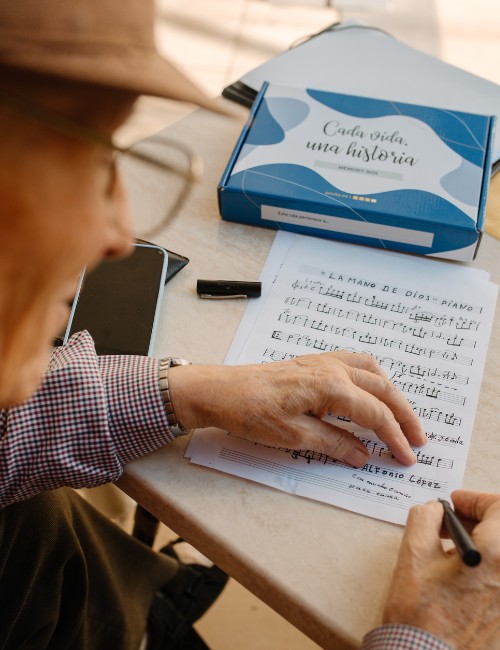 Cada vida,
una historia
MEMORY BOX
Esta vida pertenece a...
"LA MANO DE DIOS" PIANO 1
ALFONSO LÓPEZ
Con mucho cariño
para